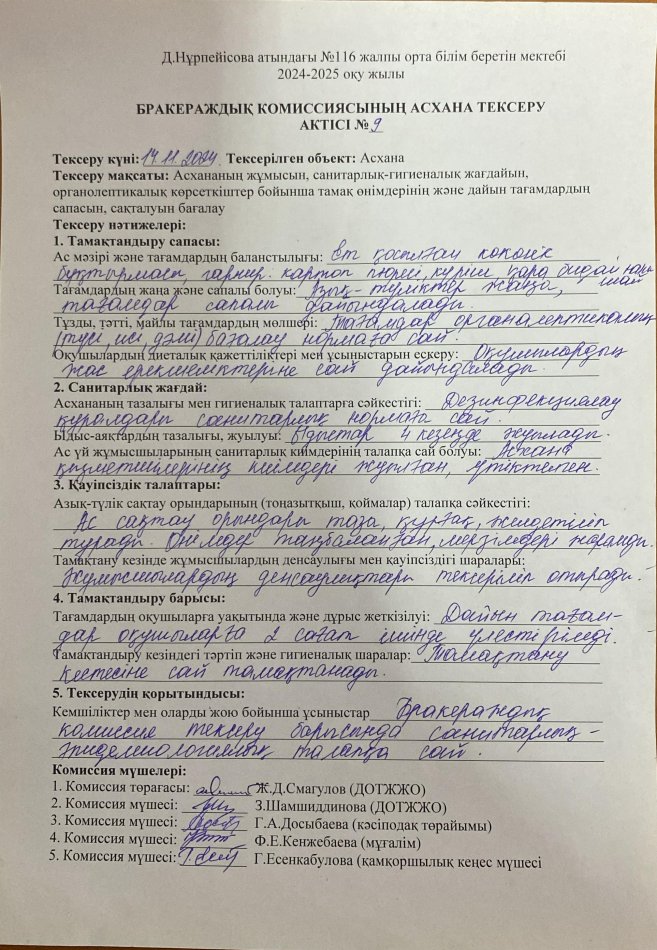 Д.Нұрпейісова атындағы №116 жалпы орта білім беретін мектебі
2024-2025 оқу жылы
БРАКЕРАЖДЫҚ КОМИССИЯСЫНЫҢ АСХАНА ТЕКСЕРУ
АКТІСІ № 9
Тексеру күні: 14.11.2024. Тексерілген объект: Асхана
Тексеру мақсаты: Асхананың жұмысын, санитарлық-гигиеналық жағдайын,
органолептикалық көрсеткіштер бойынша тамақ өнімдерінің және дайын тағамдардың
сапасын, сақталуын бағалау
Тексеру нәтижелері:
1. Тамақтандыру сапасы:
Ас мәзірі және тағамдардың баланстылығы: Ет қосылған көкөніс
бұқтырмасы, гарнир. картоп пюресі, күріш, қара бидай наны
Тағамдардың жаңа және сапалы болуы: Азық-түліктер жаңа, шай
тағамдар сапалы дайындалады.
Тұзды, тәтті, майлы тағамдардың мөлшері: Тағамдар органолептикалық
(түсі, исі, дәмі) бағалау нормаға сай.
Оқушылардың диеталық қажеттіліктері мен ұсыныстарын ескеру: Оқушылардың
жас ерекшеліктеріне сай дайындалады.
2. Санитарлық жағдай:
Асхананың тазалығы мен гигиеналық талаптарға сәйкестігі: Дезинфекциялау
құралдары санитарлық нормаға сай.
Ыдыс-аяқтардың тазалығы, жуылуы: Ыдыстар 4 кезеңде жуылады.
Ас үй жұмысшыларының санитарлық киімдерінің талапқа сай болуы: Асхана
қызметшілерінің киімдері жуылған, үтіктелген.
3. Қауіпсіздік талаптары:
Азық-түлік сақтау орындарының (тоңазытқыш, қоймалар) талапқа сәйкестігі:
Ас сақтау орындары таза, құрғақ, желдетіліп
тұрады. Өнімдер таңбаланған, мерзімдері жарамды.
Тамақтану кезінде жұмысшылардың денсаулығы мен қауіпсіздігі шаралары:
Жұмысшылардың денсаулықтары тексеріліп отырады.
4. Тамақтандыру барысы:
Тағамдардың оқушыларға уақытында және дұрыс жеткізілуі: Дайын тағам-
дар оқушыларға 2 сағат ішінде үлестіріледі.
Тамақтандыру кезіндегі тәртіп және гигиеналық шаралар: Тамақтану
кестесіне сай тамақтанады.
5. Тексерудің қорытындысы:
Кемшіліктер мен оларды жою бойынша ұсыныстар Бракераждық
комиссия тексеру барысында санитарлық-
эпидемиологиялық талапқа сай.
Комиссия мүшелері:
1. Комиссия төрағасы: Ж.Д.Смагулов (ДОТЖЖО)
2. Комиссия мүшесі: З.Шамшиддинова (ДОТЖЖО)
3. Комиссия мүшесі: Г.А.Досыбаева (кәсіподақ төрайымы)
4. Комиссия мүшесі: Ф.Е.Кенжебаева (мұғалім)
5. Комиссия мүшесі: Г.Есенкабулова (қамқоршылық кеңес мүшесі